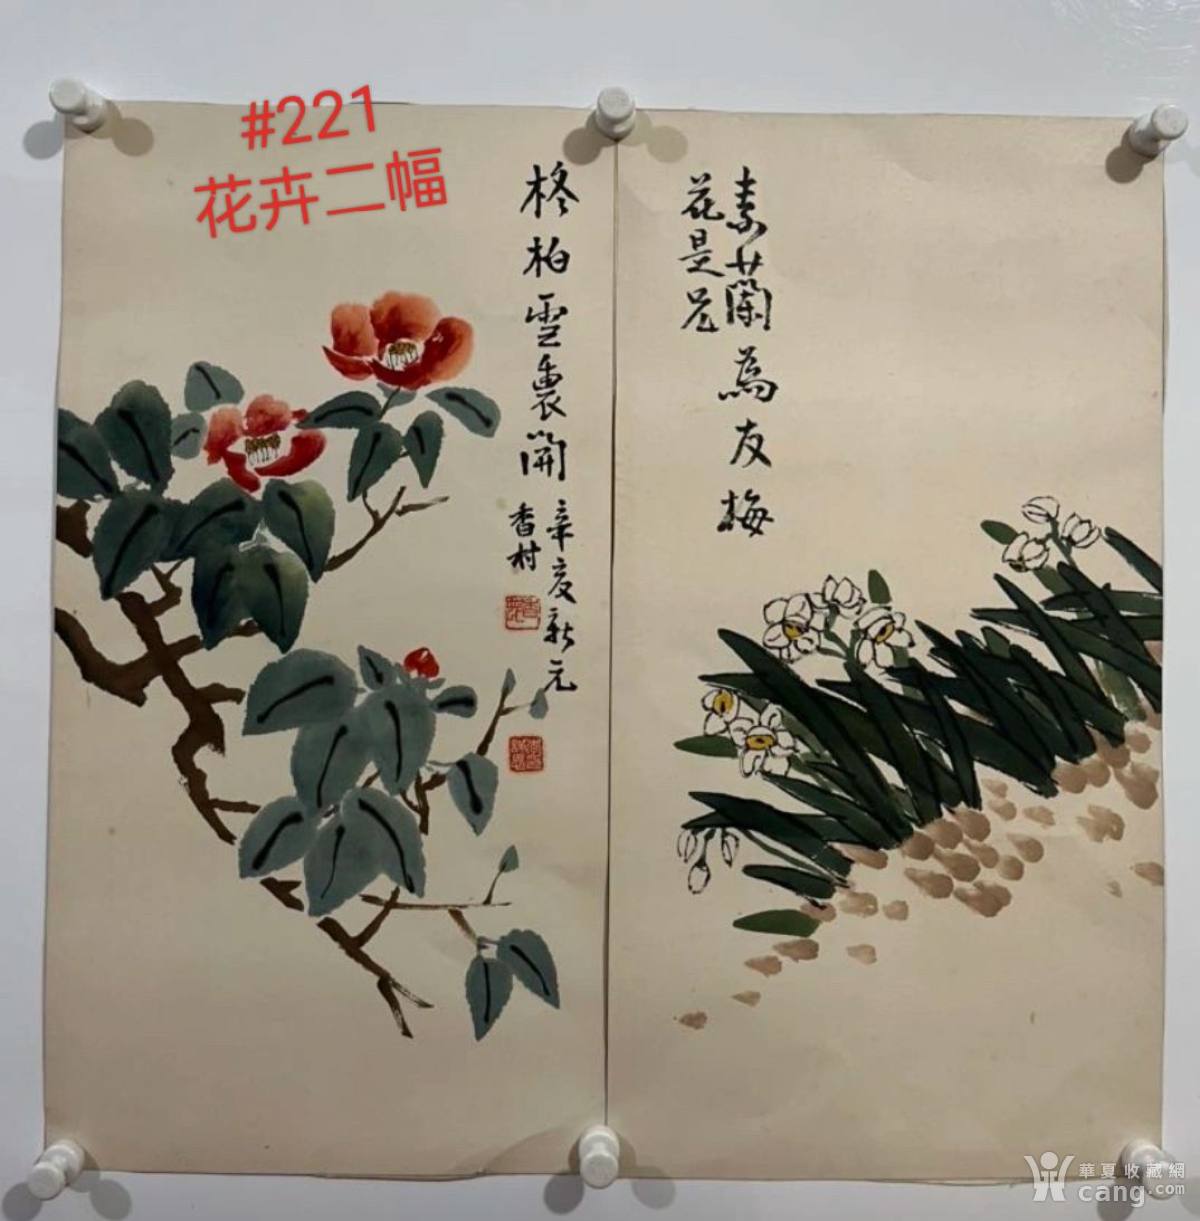 #221
花卉二幅
柊柏雪裏開
辛亥新元
香村
素蘭為友梅
花是兄
華夏收藏網
cang.com